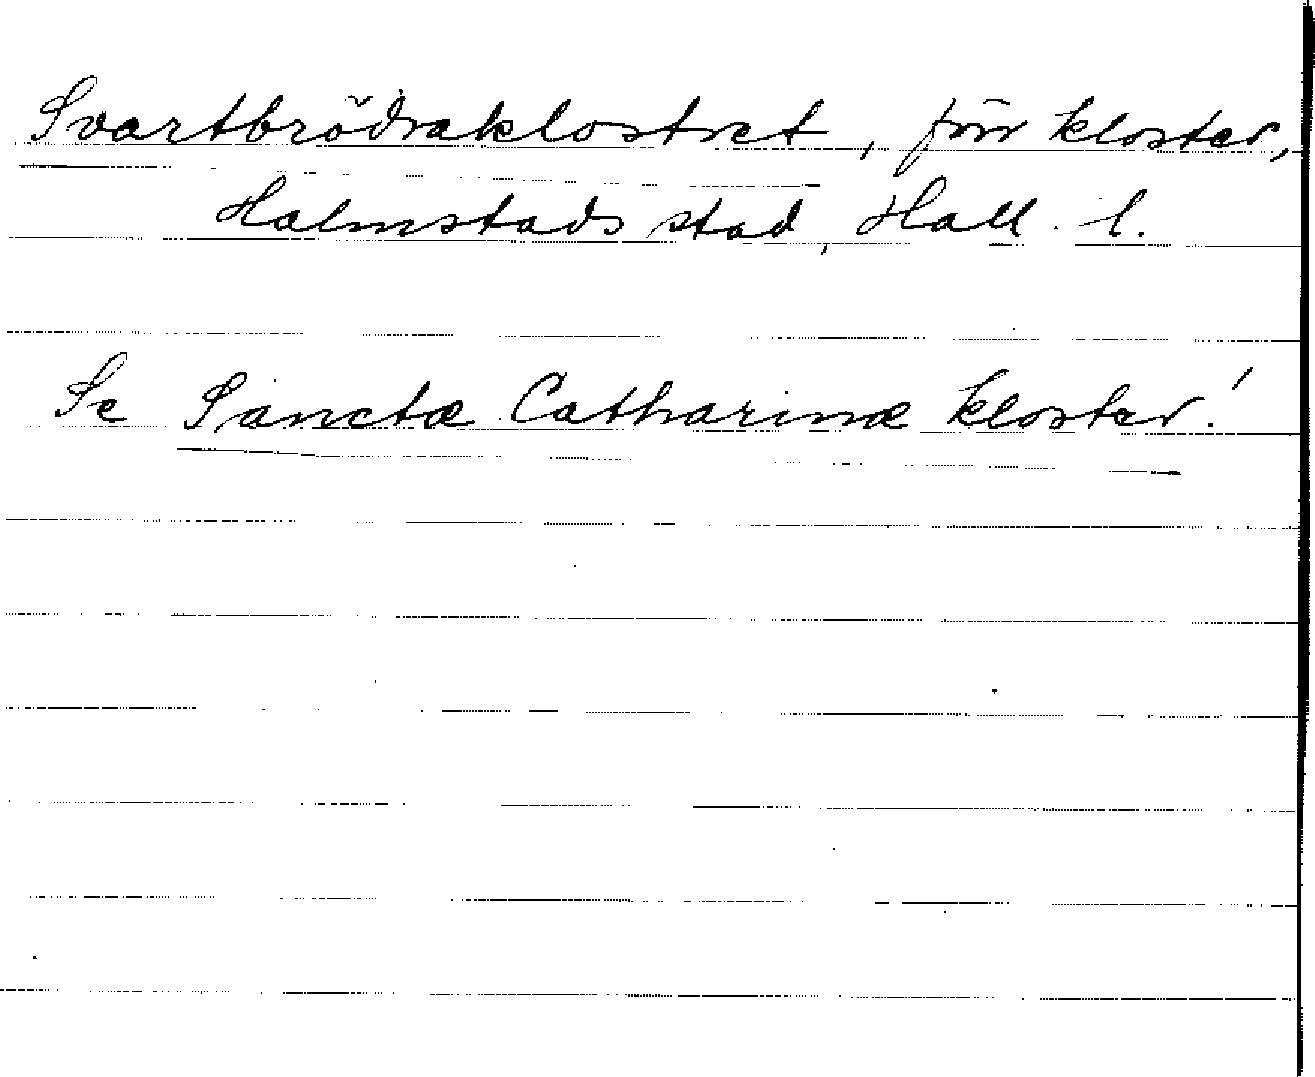 Svartbrödraklostret, förr kloster,
Halmstads stad, Hall. l.
Se Sanctæ Catharinæ kloster!